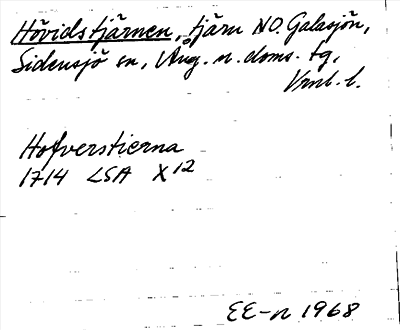 Hövidstjärnen, tjärn NO. Galasjön,
Sidensjö sn, Ång. n. doms. tg,
Vrnl. l.
Hofverstierna
1714 LSA X12
EE-n 1968